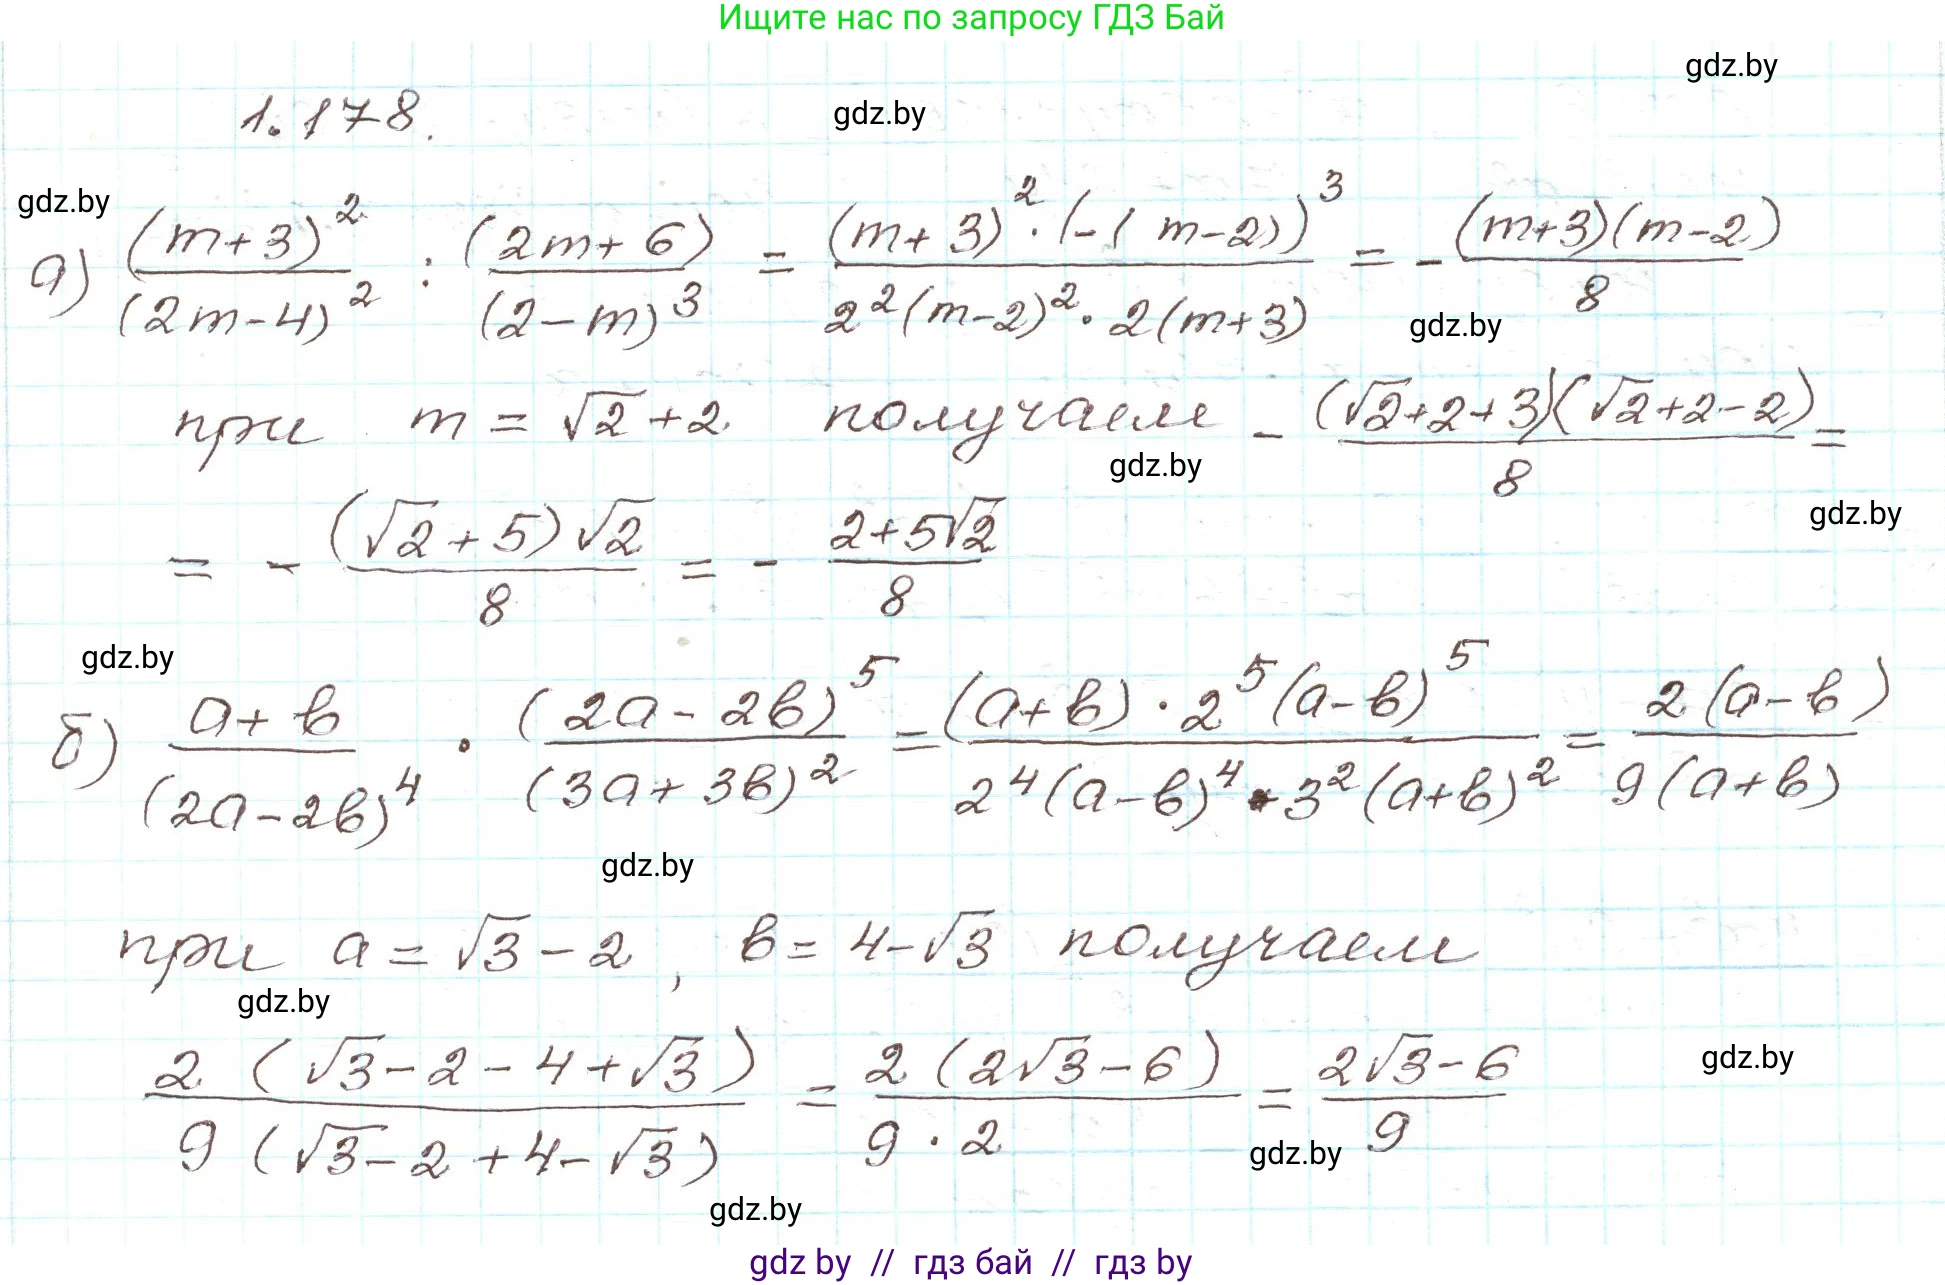 Ищите нас по запросу ГДЗ Бай
gdz.by
1.178.
gdz.by
gdz.by
а) (m+3)² / (2m-4)² : (2m+6) / (2-m)³ = (m+3)²·(-(m-2))³ / 2²(m-2)²·2(m+3) = - (m+3)(m-2) / 8
gdz.by
при m = √2+2 получаем - (√2+2+3)(√2+2-2) / 8 =
gdz.by
gdz.by
= - (√2+5)√2 / 8 = - 2+5√2 / 8
gdz.by
б) a+b / (2a-2b)⁴ · (2a-2b)⁵ / (3a+3b)² = (a+b)·2⁵(a-b)⁵ / 2⁴(a-b)⁴·3²(a+b)² = 2(a-b) / 9(a+b)
gdz.by
при a = √3-2, b = 4-√3 получаем
gdz.by
2(√3-2-4+√3) / 9(√3-2+4-√3) = 2(2√3-6) / 9·2 = 2√3-6 / 9
gdz.by
gdz.by
gdz.by
gdz by // гдз бай // гдз by